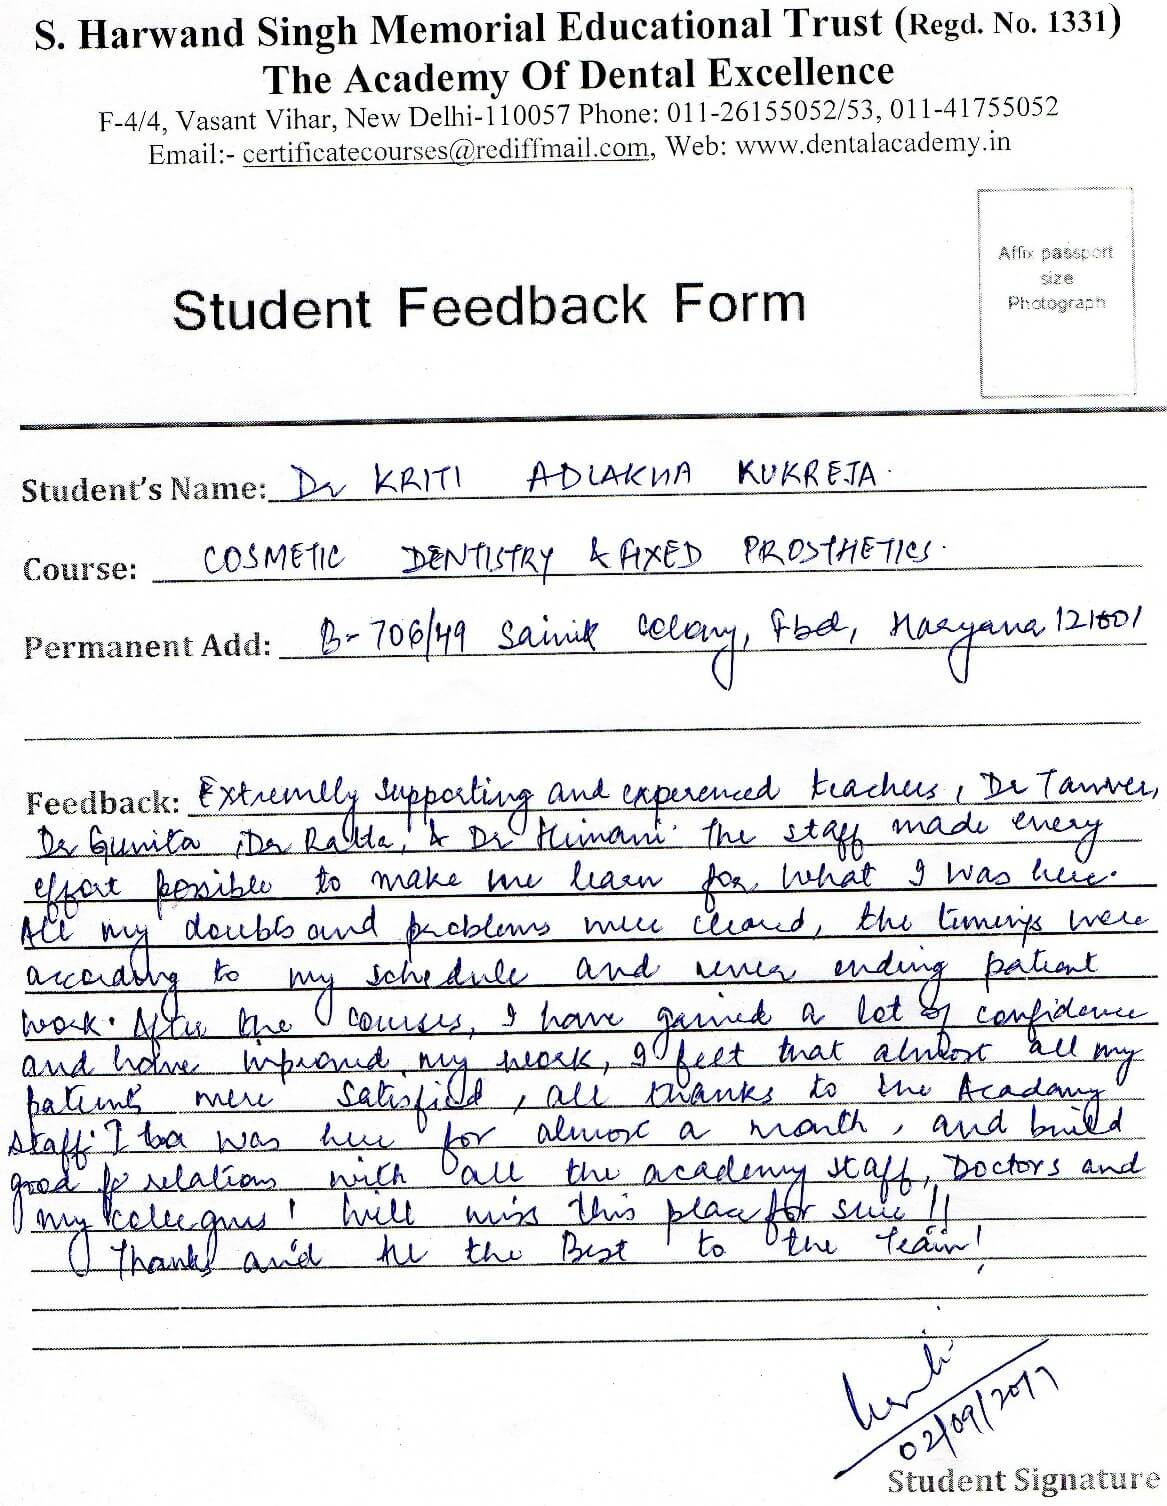 S. Harwand Singh Memorial Educational Trust (Regd. No. 1331)
The Academy Of Dental Excellence
F-4/4, Vasant Vihar, New Delhi-110057 Phone: 011-26155052/53, 011-41755052
Email:- certificatecourses@rediffmail.com, Web: www.dentalacademy.in
Affix passport
size
Photograph
Student Feedback Form
Student's Name: Dr KRITI ADLAKHA KUKREJA.
Course: COSMETIC DENTISTRY & FIXED PROSTHETICS.
Permanent Add: B-706/49 Sainik Colony, Fbd, Haryana 121001
Feedback: Extremelly supporting and experenced teachers, Dr Tanveer,
Dr Gunita, Dr & Dr Himani. The staff made every
effort possible to make me learn for what I was here.
All my doubts and problems were cleared, the timings were
according to my schedule and never ending patient
work. After the courses, I have gained a lot of confidence
and have improved my work, I feel that almost all my
patients were satisfied, all thanks to the Academy
staff. I was here for almost a month, and build
good relations with all the academy staff, Doctors and
my collegues! Will miss this place for sure!!
Thanks and All the Best to the Team!
02/09/2017
Student Signature